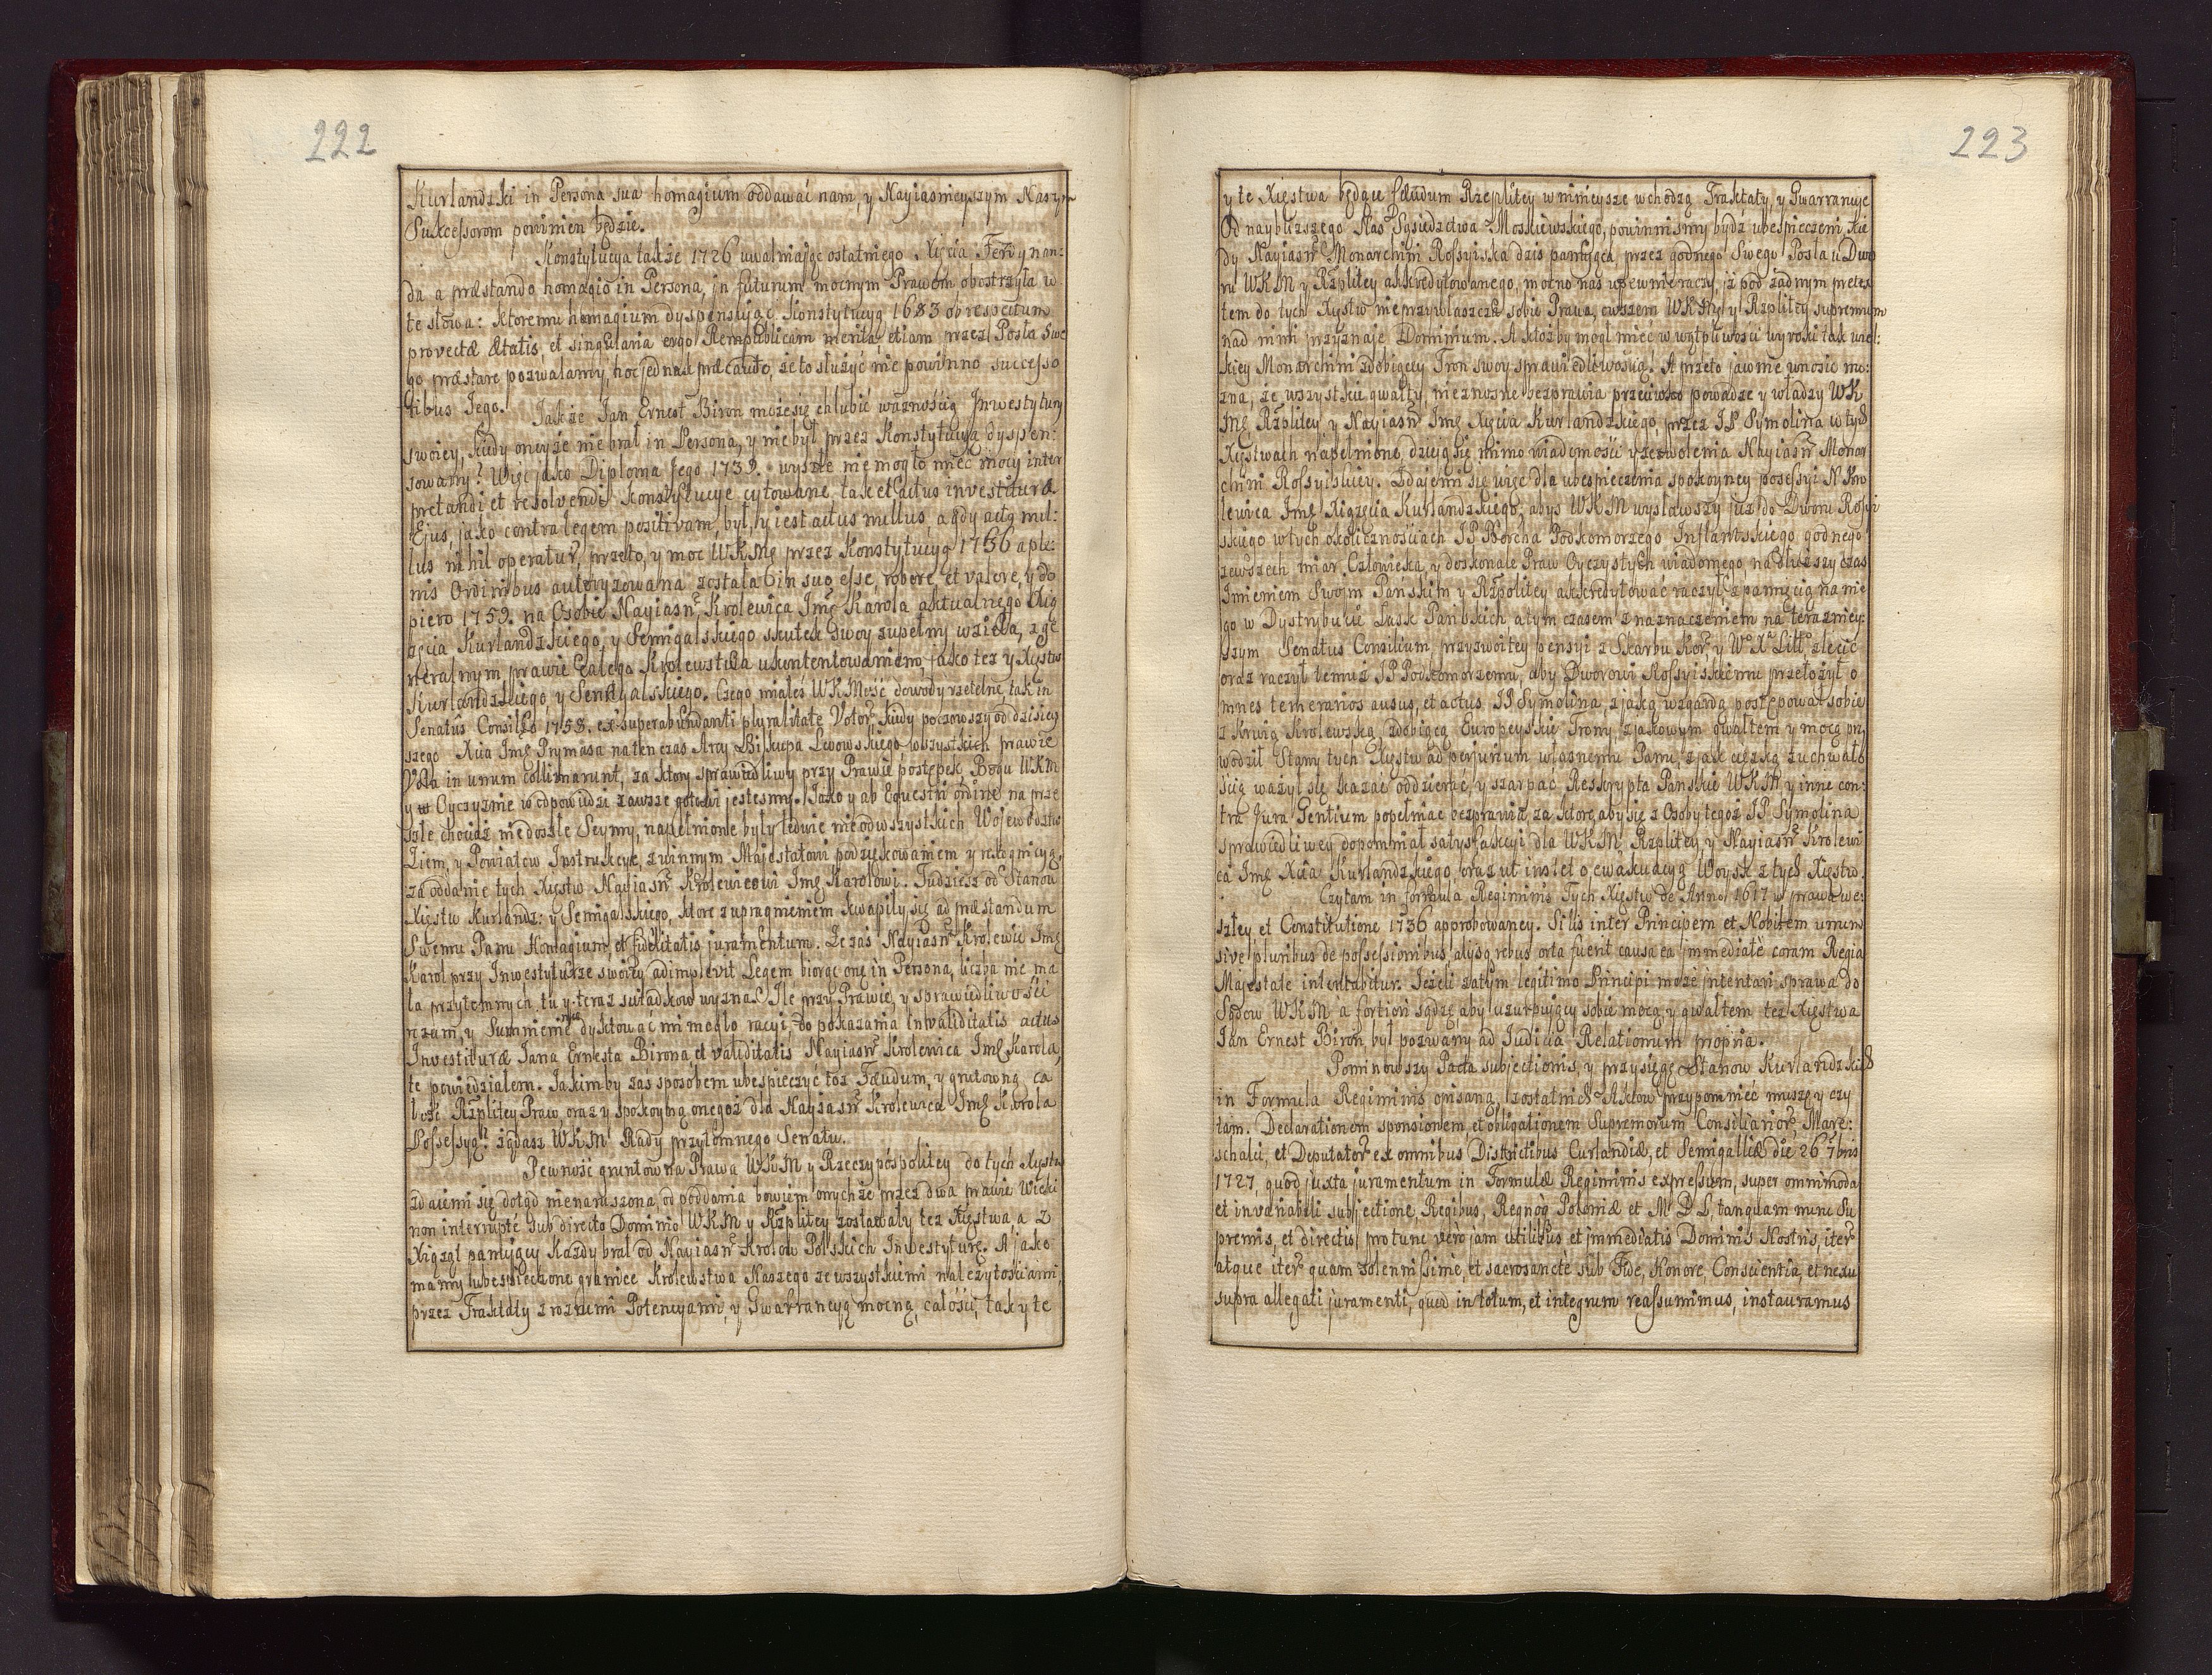 222
Kurlandzki in Persona sua homagium oddawać nam, y Nayiasnieyszym Naszym
Sukcessorom powinien będzie.
Konstytucya także 1726 uwalniając ostatniego Xięcia Ferdynan:
da a præstando homagio in Persona, in futurum mocnym Prawem obostrzyła w
te słowa: ktoremu homagium dyspensując Konstytucyą 1683 ob respectum
provectæ Ætatis, et singularia ergo Rempublicam merita, etiam przez Posła Swe
go præstare pozwalamy, hoc jednak præcauto, że to służyć nie powinno successo
ribus Jego.
Jakże Jan Ernest Biron może się chlubić ważnością Inwestytury
swoiey, kiedy oneyże nie brał in Persona, y nie był przez Konstytucyą dyspen:
sowany? Więc jako Diploma Jego 1739. wyszłe nie mogło mieć mocy inter
pretandi et resolvendi Konstytucye cytowane, tak et actus investituræ
Ejus, jako contra legem positivam, był, y iest actus nullus, a gdy actq nul:
lus nihil operatur, przeto, y moc WKMę przez Konstytucyą 1736 a ple:
nis Ordinibus autoryzowana została in suo esse, robore, et valore, y do
piero 1759. na Osobie Nayiasn Krolewica Imę Karola aktualnego Xią
żęcia Kurlandzkiego, y Semigalskiego skutek swoy zupełny wzieła, z ge
neralnym prawie całego Krolewstwa ukontentowaniem, jako też y Xięstw
Kurlandzkiego, y Semigalskiego. Czego miałeś WKMość dowody rzetelne, tak in
Senatûs Consilio 1758. ex superabundanti pluralitate Votor, kiedy począwszy od dzisiey
szego Xcia Imę Prymasa na ten czas Arcy Biskupa Lwowskiego wszystkich prawie
Vota in unum collimarunt, za ktory sprawiedliwy przy Prawie postępek, Bogu WKM
y w Oyczyznie w odpowiedzi zawsze gotowi jestesmy. Jako y ab Equestri ordine na prze
szłe chociaż niedoszłe Seymy, napełnione były ledwie nie od wszystkich Wojewodztw
Ziem, y Powiatow Instrukcye, z winnym Majestatowi podziękowaniem y rekognicyą,
za oddanie tych Xięstw Nayiasn Krolewicowi Imę Karolowi. Tudziesz od Stanow
Xięstw Kurlandz: y Semigalskiego, ktore z upragnieniem kwapiły się ad præstandum
Swemu Panu Homagium, et fidelitatis juramentum. Że zaś Nayiasn Krolewic Imę
Karol przy Inwestyturze swoiey adimplevit Legem biorąc onę in Persona, liczba nie ma
ła przytomnych tu y teraz swiadkow wyzna. Ile przy Prawie, y sprawiedliwości
rozum, y Summienie dyktować mi mogło racyi, do pokazania invaliditatis actus
Investituræ Jana Ernesta Birona et validitatis Nayiasn Krolewica Imę Karola,
te powiedziałem. Jakimby zaś sposobem ubespieczyć toż Fœudum, y gruntowną ca
łość Rzplitey Praw, oraz y spokoyną onegoż dla Nayiasn Krolewica Imę Karola
Possessyą? żądasz WKM Rady przytomnego Senatu.
Pewność gruntowna Prawa WKM y Rzeczypospolitey do tych Xięstw
zdaiemi się dotąd nienaruszona, od poddania bowiem onychże przez dwa prawie Wieki
non interruptè sub directo Dominio WKM y Rzplitey zostawały też Xięstwa, a z
Xiążąt panujący każdy brał od Nayiasn Krolow Polskich Inwestyturę. A jako
mamy ubespieczone granice Krolewstwa Naszego ze wszystkiemi należytościami,
przez Traktaty z rożnemi Potencyami, y Gwarrancyą mocną całości, tak y te
223
y te Xięstwa będące fœudum Rzeplitey w ninieysze wchodzą Traktaty, y Gwarrancye
Od naybliższego Nas Sąsiedztwa Moskiewskiego, powinnismy bydź ubespieczeni, kie
dy Nayiasn Monarchini Rossyiska dzis panująca, przez godnego Swego Posła u Dwo
ru WKM y Rzplitey akkredytowanego, mocno nas upewnic raczy, iż pod żadnym pretex
tem do tych Xięstw nieprzywłaszcza sobie Prawa, owszem WKMci y Rzplitey supremum
nad nimi przyznaje Dominium. A ktożby mogł mieć w wątpliwości wyroki tak wiel:
kiey Monarchini zdobiącey Tron swoy sprawiedliwością? A przeto jawnie wnosić mo:
żna, że wszystkie gwałty, nieznosne bezprawia przeciwko powadze y władzy WK
Mę Rzplitey y Nayiasn Imę Xięcia Kurlandzkiego, przez JP Symolina w tych
Xięstwach napełnione, dzieją się mimo wiadomość y zezwolenia Nayiasn Monar
chini Rossyiskiey. Zdajemi się więc dla ubespieczenia spokoyney posessyi N Kro
lewica Imę Xiążęcia Kurlandzkiego, abyś WKM wysławszy już do Dworu Rossyi
skiego w tych okolicznościach JP Borcha Podkomorzego Inflantskiego, godnego
zewszech miar Człowieka, y doskonale Praw Oyczystych wiadomego, na dłuższy czas
Imieniem Swoim Pańskim y Rzpolitey akkredytować raczył, z pamięcią na nie
go w Dystrybucie Łask Pańskich, a tym czasem z naznaczeniem na teraznieỳ:
szym Senatus Consilium, przyzwoitey pensyi z Skarbu Kor y WX Litt, zlecić
oraz raczył temuż JP Podkomorzemu, aby Dworowi Rossyiskiemu przełożył o
mnes temerarios ausus, et actus JP Symolina, z jaką wzgardą postępował sobie
z krwią Krolewską, zdobiącą Europeyskie Trony, z jakowym gwałtem y mocą przy
wodził Stany tych Xięstw ad perjurium własnemu Panu, z jak ciężką zuchwało
ścią ważył się kazać oddzierać, y szarpać Reskrypta Pańskie WKM y inne con:
tra Jura Gentium popełniac bezprawia, za ktore, aby się z Osoby tegoż JP Symolina
sprawiedliwey dopominał satysfakcyi dla WKM, Rzplitey y Nayiasn Krolewi
ca Imę Xcia Kurlandzkiego, oraz ut instet o ewakuacyą Woysk z tych Xięstw.
Czytam in formula Regiminis Tych Xięstw de Anno 1617 w prawo we:
szley et Constitutione 1736 approbowaney. Si lis inter Principem et Nobilem unum
sive pluribus de possessionibus, alysq rebus orta fuerit causa ea immediatè coram Regia
Majestate intentabitur. Jeżeli zatym legitimo Principi może intentari sprawa do
Sądow WKM à fortiori sądzę, aby uzurpujący sobie mocą, y gwałtem też Xięstwa
Jan Ernest Biron, był pozwany ad Judicia Relationum propria.
Pominowszy Pacta subjectionis, y przysięgę Stanow Kurlandzkich
in Formula Regiminis opisaną, z ostatnich Aktow przypomnieć muszę, y czy
tam. Declarationem sponsionem, et obligationem Supremorum Consiliarior, Mare:
schalci, et Deputator ex omnibus Districtibus Curlandiæ, et Semigalliæ die 26 7bris
1727, quod juxta juramentum in Formulâ Regiminis expressum, super omnimoda
et invariabili subjectione, Regibus, Regnoq Poloniæ et M D L, tanquam nunc Su
premis, et directis, pro tunc verò jam utilibus et immediatis Dominis Nostris, iter
atque iter quam solennissimè, et sacrosanctè sub Fide, Honore, Conscientia, et nexu
supra allegati juramenti, quod in totum, et integrum reassumimus, instauramus